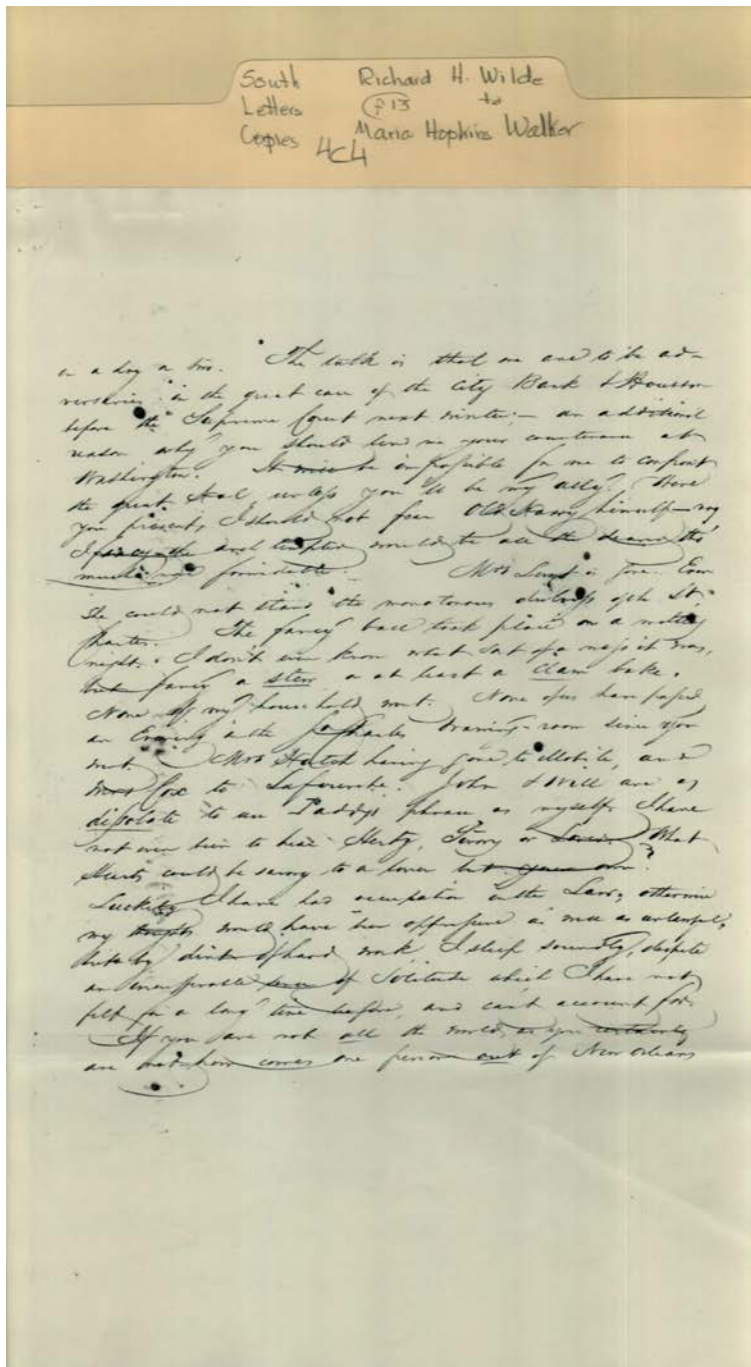 South Richard H. Wilde
Letters P 13 to
Copies Maria Hopkins Walker
4C4
in a day or two. The talk is that we are to be ad-
versaries in the great case of the City Bank & Houston
before the Supreme Court next winter; – an additional
reason why you should lend me your countenance at
Washington. It will be impossible for me to confront
the great unless you'll be my ally. Were
you present, I should not fear Old Harry himself – nay
I and tempted would be all the tho'
much more formidable. Mrs is gone. Even
she could not stand the monotonous dulness of the St.
Charles. The fancy ball took place on a melting
night. I don't even know what sort of a mess it was,
but fancy a stew or at least a clam bake.
None of my household went. None of us have passed
an Evening in the St Charles drawing-room since you
went. Mrs Hatch having gone to Mobile, and
Fox to Lafourche. John & Will are as
disolate to use Paddy's phrase as myself. I have
not even been to hear Hertz, or What
Hertz could be savory to a lover but your own?
Luckily I have had occupation in the Law, otherwise
my would have been oppressive as well as
but by dint of hard work, I sleep soundly, despite
an insufferable sense of Solitude which I have not
felt for a long time before, and can't account for.
If you are not all the world, as you certainly
are not how comes one person out of New Orleans